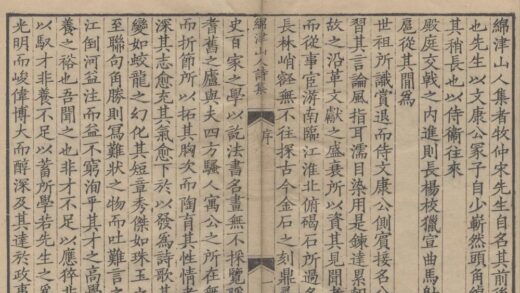 綿津山人集者牧仲宋先生自名其前後
也先生以文康公冢子自少嶄然頭角
其稍長也以侍衛往來
殿庭交戟之內進則長楊校獵宣曲馬
扈從其間爲
世祖所識賞退而侍文康公側賓接名公
習其言論風指耳濡目染用是鍊達累
故之沿革文獻之盛衰所以資其見聞者
而從事宦游南臨江淮北俯碣石所過名
長林峭壑無不往探古今金石之刻鼎
綿津山人詩集
序
史百家之學以訖法書名畫無不採覽
耆舊之廬與夫四方騷人寓公之所在無
而折節所以拓其胸次而陶育其性情者
深其志愈充其氣愈下於以發爲詩歌其
變如蛟龍之幻化其短章秀傑如珠玉之
至聯句角勝則冩難狀之物而吐難言
江倒河益注而益不窮洵乎其才之高學
養之裕也吾聞之也非才不足以應猝非
以馭才非養不足以蓄所學若先生之爲
光明而峻偉博大而醇深及其達於政事